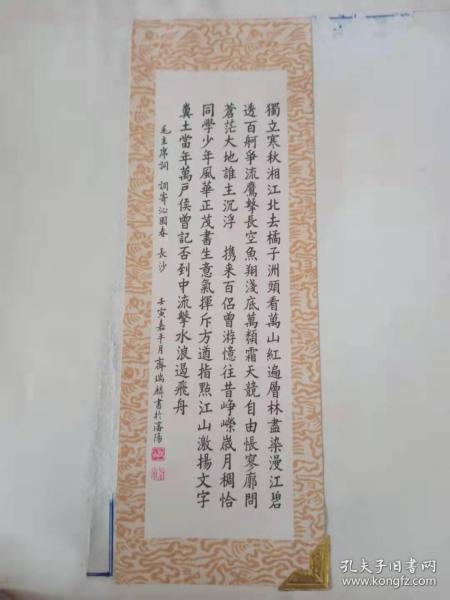 獨立寒秋湘江北去橘子洲頭看萬山紅遍層林盡染漫江碧
透百舸爭流鷹擊長空魚翔淺底萬類霜天競自由悵寥廓問
蒼茫大地誰主沉浮 携来百侣曾游憶往昔崢嶸歲月稠恰
同學少年風華正茂書生意氣揮斥方遒指點江山激揚文字
糞土當年萬戶侯曾記否到中流擊水浪遏飛舟
毛主席詞 調寄沁園春 長沙
壬寅嘉平月齊瑞麟書於瀋陽
孔夫子旧书网
www.kongfz.com